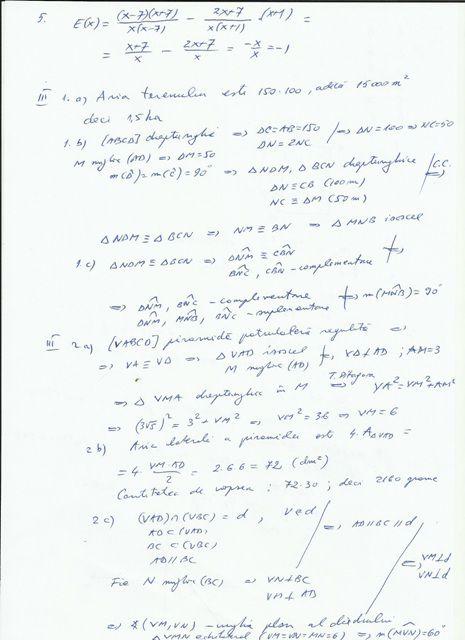 5. E(x) = (x-7)(x+7)/x(x-7) - 2x+7/x(x+1) · (x+1) =
= x+7/x - 2x+7/x = -x/x = -1
III 1. a) Aria terenului este 150·100, adică 15000 m²
deci 1,5 ha
1. b) [ABCD] dreptunghi ⇒ DC=AB=150 / ⇒ DN=100 ⇒ NC=50
DN = 2NC
M mijloc (AD) ⇒ DM=50
m(D̂)=m(Ĉ)=90° ⇒ △NDM, △BCN dreptunghice | C.C. ⇒
DN≡CB (100m)
NC≡DM (50m)
△NDM≡△BCN ⇒ NM≡BN ⇒ △MNB isoscel
1. c) △NDM≡△BCN ⇒ DNM≡CBN
BNC, CBN - complementare ⇒
⇒ DNM, BNC - complementare ⇒ m(MNB)=90°
DNM, MNB, BNC - suplementare
III 2 a) [VABCD] piramidă patrulateră regulată ⇒
⇒ VA≡VD ⇒ △VAD isoscel ⇒ VD⊥AD ; AM=3
M mijloc (AD)
⇒ △VMA dreptunghic în M T.Pitagora ⇒ VA²=VM²+AM²
⇒ (3√5)²=3²+VM² ⇒ VM²=36 ⇒ VM=6
2 b) Aria laterală a piramidei este 4·A△VAD =
= 4·VM·AD/2 = 2·6·6 = 72 (dm²)
Cantitatea de vopsea : 72·30 ; deci 2160 grame
2 c) (VAD)∩(VBC) = d , V∈d
AD⊂(VAD)
BC⊂(VBC) ⇒ AD∥BC∥d
AD∥BC
Fie N mijloc (BC) ⇒ VN⊥BC ⇒ VM⊥d
VM⊥AD VN⊥d
⇒ ∢(VM,VN) - unghi plan al diedrului
△VMN echilateral (VM=VN=MN=6) ⇒ m(MVN)=60°